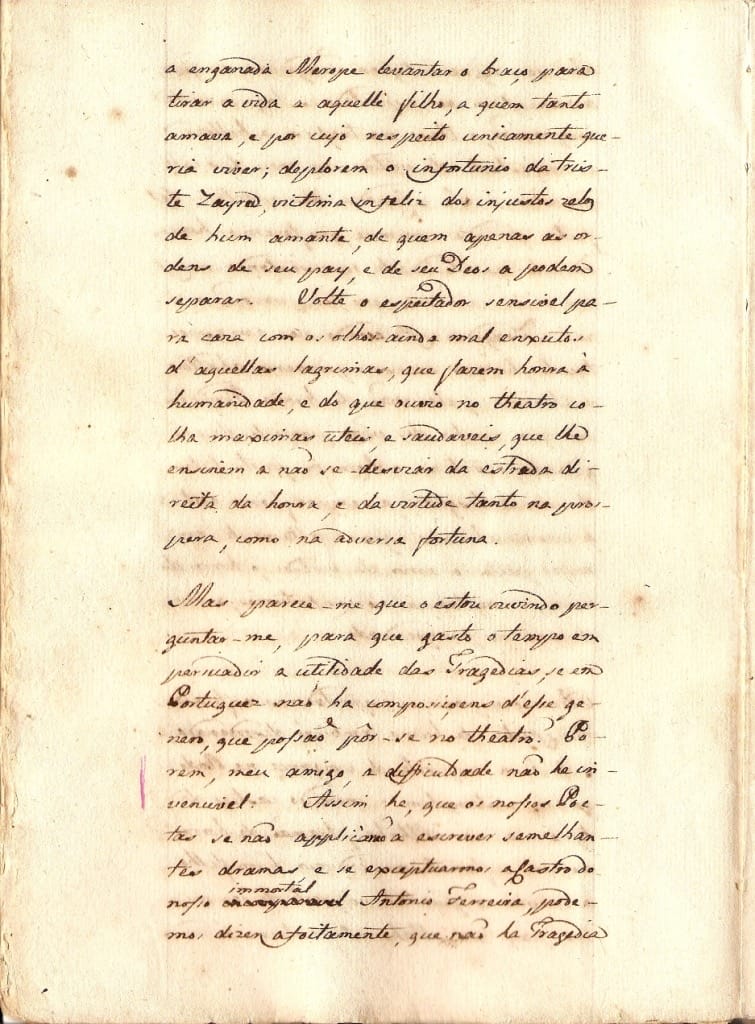 a enganada Merope levantar o braço para
tirar a vida a aquelle filho, a quem tanto
amava, e por cujo respeito unicamente que-
ria viver; deplorem o infortunio da tris-
te Zayre, victima infeliz dos injustos zelos
de hum amante, de quem apenas as or-
dens de seu pay, e de seu Deos a podem
separar. Volte o espectador sensivel pa-
ra caza com os olhos ainda mal enxutos
d'aquellas lagrimas, que fazem honra à
humanidade, e do que ouvio no theatro co-
lha maximas uteis, e saudaveis, que lhe
ensinem a não se desviar da estrada di-
reita da honra, e da virtude tanto na pros-
pera, como na adversa fortuna.
Mas parece-me que o estou ouvindo per-
guntar-me, para que gasto o tempo em
persuadir a utilidade das Tragedias, se em
Portuguez não ha composiçoens d'esse ge-
nero, que possão pôr-se no theatro? Po-
rem, meu amigo, a difficuldade não he in-
vencivel. Assim he, que os nossos Poe-
tas se não applicão a escrever semelhan-
tes dramas, e se exceptuarmos a Castro do
nosso immortal Antonio Ferreira, pode-
mos dizer afoitamente, que não ha Tragedia